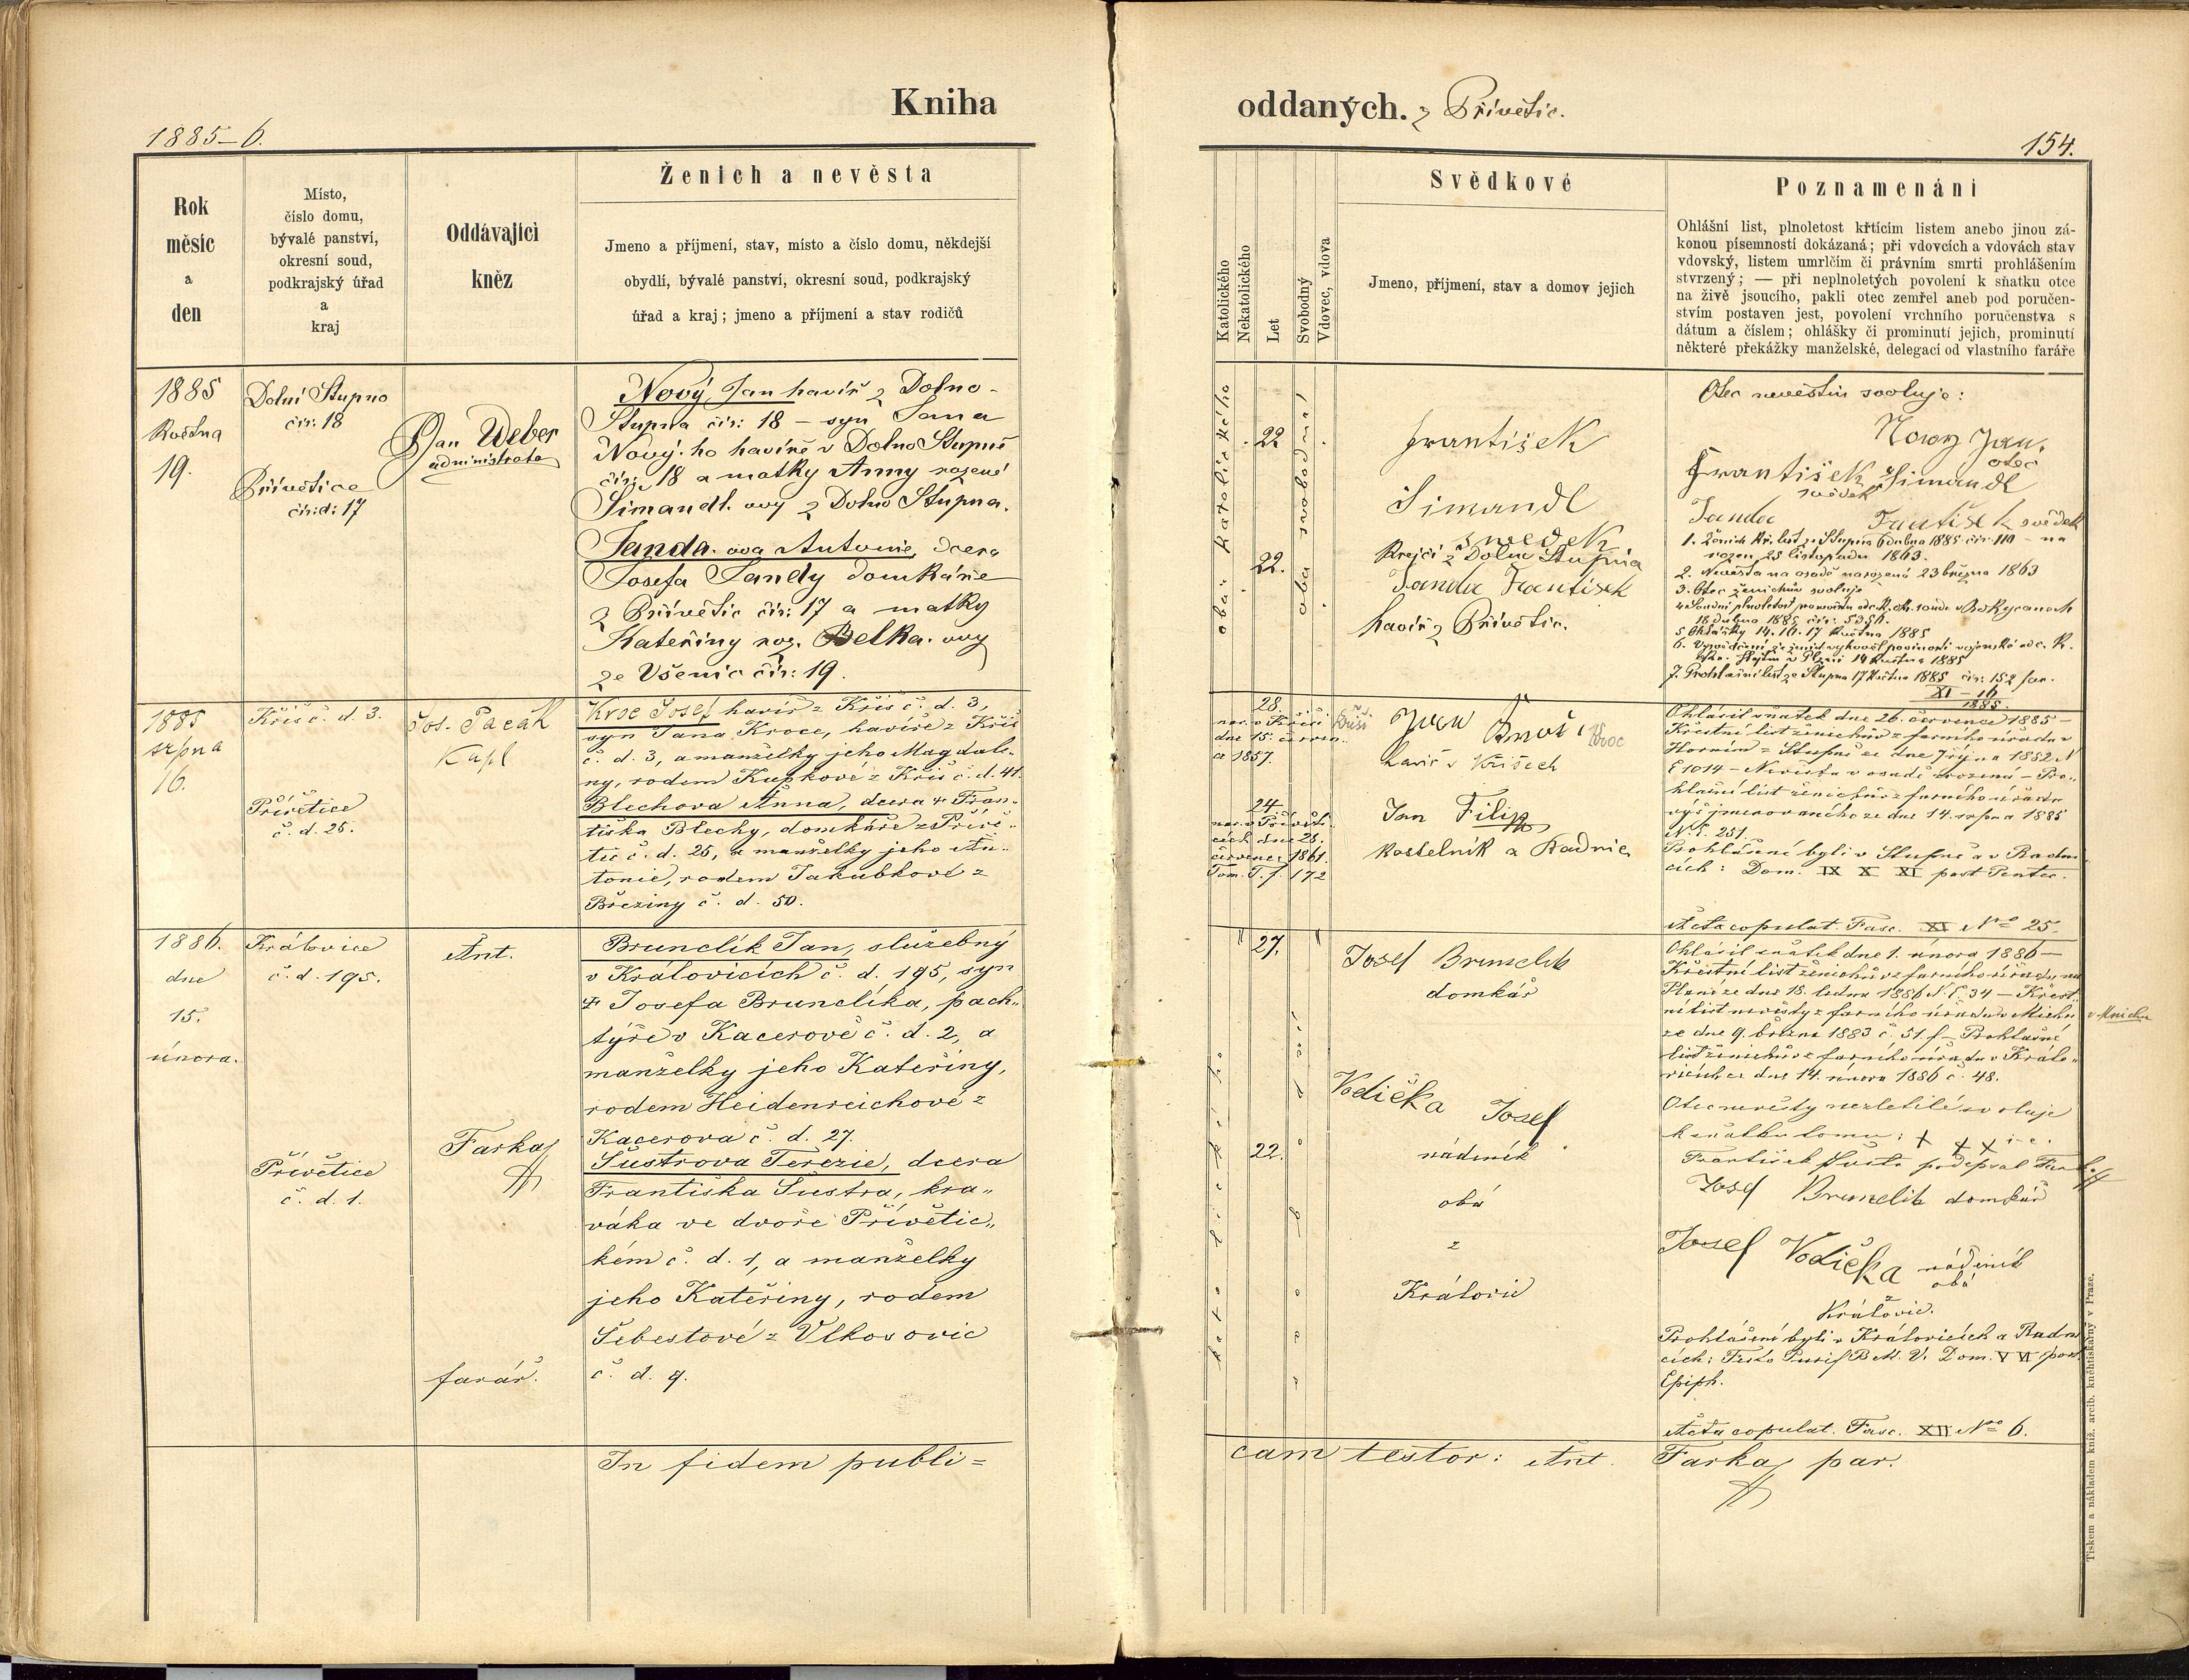 Kniha
oddaných. z Přívětic.
1885–6.
154.
Rok
měsíc
a
den
Místo,
číslo domu,
bývalé panství,
okresní soud,
podkrajský úřad
a
kraj
Oddávající
kněz
Ženich a nevěsta
Jmeno a příjmení, stav, místo a číslo domu, někdejší
obydlí, bývalé panství, okresní soud, podkrajský
úřad a kraj; jmeno a příjmení a stav rodičů
Katolického
Nekatolického
Let
Svobodný
Vdovec, vdova
Svědkové
Jmeno, příjmení, stav a domov jejich
Poznamenání
Ohlášní list, plnoletost křtícím listem anebo jinou zá-
konou písemností dokázaná; při vdovcích a vdovách stav
vdovský, listem umrlčím či právním smrti prohlášením
stvrzený; — při neplnoletých povolení k sňatku otce
na živě jsoucího, pakli otec zemřel aneb pod poručen-
stvím postaven jest, povolení vrchního poručenstva s
dátum a číslem; ohlášky či prominutí jejich, prominutí
některé překážky manželské, delegací od vlastního faráře
1885
Května
19.
Dolní Stupno
čís: 18
Přívětice
čís:d: 17
Jan Weber
administrator
Nový Jan havíř z Dolno-
Stupna čís: 18 – syn Jana
Nový. ho havíře v Dolno Stupně
čís: 18 a matky Anny rozené
Šimandl. ovy z Dolno Stupna.
Janda. ova Antonie, dcera
Josefa Jandy domkáře
z Přívětic čís: 17 a matky
Kateřiny roz. Belka. ovy
ze Všenic čís: 19.
oba katolického
22
22.
oba svobodní
František
Šimandl
svědek
Krejčí z Dolno Stupna
Janda František
havíř z Přívětic.
Otec nevěstin svoluje:
Nový Jan.
otec
František Šimandl
svědek
Janda František svědek
1. Ženich kř. list ze Stupna 6 dubna 1885 čís: 110 – na
rozen 25 listopadu 1863.
2. Nevěsta na osadě narozená 23 března 1863
3. Otec ženichův svoluje
18 dubna 1885 čís:
5 Ohlášky 14. 16. 17 května 1885
v Plzni 14 května 1885
7. Prohlášní list ze Stupna 17 května 1885 čís: 152 far.
XI – 16
1885.
1885
srpna
16.
Kříš č. d. 3.
Přívětice
č. d. 25.
Jos. Pacák
Kapl
Kroc Josef havíř z Kříš č. d. 3,
syn Jana Kroce, havíře z Kříš
č. d. 3, a manželky jeho Magdale-
ny, rodem Kupkové z Kříš č. d. 41.
Blechova Anna, dcera + Fran-
tiška Blechy, domkáře z Přívě-
tic č. d. 25, a manželky jeho An-
tonie, rodem Jakubkové z
Březiny č. d. 50.
28.
nar. v Kříši
dne 15. června
1857.
24.
nar. v Přívěti-
cích dne 28.
července 1861.
Tom. I. f. 172
Kroc
havíř v Kříšech
Jan Filip
kostelník z Radnic
Ohlásil sňatek dne 26. července 1885 –
Křestní list ženichův z farního úřadu v
Horním – Stupně ze dne 7 října 1882 N
E 1014 – Nevěsta v osadě zrozená – Pro-
hlašní list ženichův z farního úřadu
výš jmenovaného ze dne 14. srpna 1885
N. E. 251.
Prohlášení byli v Stupně a v Radni-
cích: Dom. IX X XI post Pentec.
Acta copulat. Fasc. XI No 25.
1886.
dne
15.
února.
Kralovice
č. d. 195.
Přívětice
č. d. 1.
Ant.
Farkač
farář.
Brunclík Jan, služebný
v Kralovicích č. d. 195, syn
+ Josefa Brunclíka, pach-
týře v Kacerově č. d. 2, a
manželky jeho Kateřiny,
rodem Heidenreichové z
Kacerova č. d. 27.
Šustrova Terezie, dcera
Františka Šustra, kra-
váka ve dvoře Přívětic-
kém č. d. 1, a manželky
jeho Kateřiny, rodem
Šebestové z Vlkosovic
č. d. 9.
27.
22.
Josef Brunclik
domkář
Vodička Josef
nádeník
oba
z
Kralovic
Ohlásil sňatek dne 1. února 1886 –
Křestní list ženichův z farního úřadu na
Plané ze dne 18. ledna 1886 N. E. 34 – Křest-
ní list nevěsty z farního úřadu v Mnichu
ze dne 9. března 1883 č. 51. f – Prohlašní
list ženichův z farního úřadu v Kralo-
vicích ze dne 14. února 1886 č. 48.
v Mnichu
Otec nevěsty nezletilé svoluje
k sňatku tomu: + + +
František Šustr podepsal Farkač
Josef Brunclik domkář
Josef Vodička nádeník
oba
z
Kralovic.
Prohlášení byli v Kralovicích a Radni-
cích: Festo Purif B. M. V. Dom. V VI post
Epiph.
Acta copulat. Fasc. XII No 6.
In fidem publi=
cam testor: Ant. Farkač par.
Tiskem a nákladem kníž. arcib. knihtiskárny v Praze.